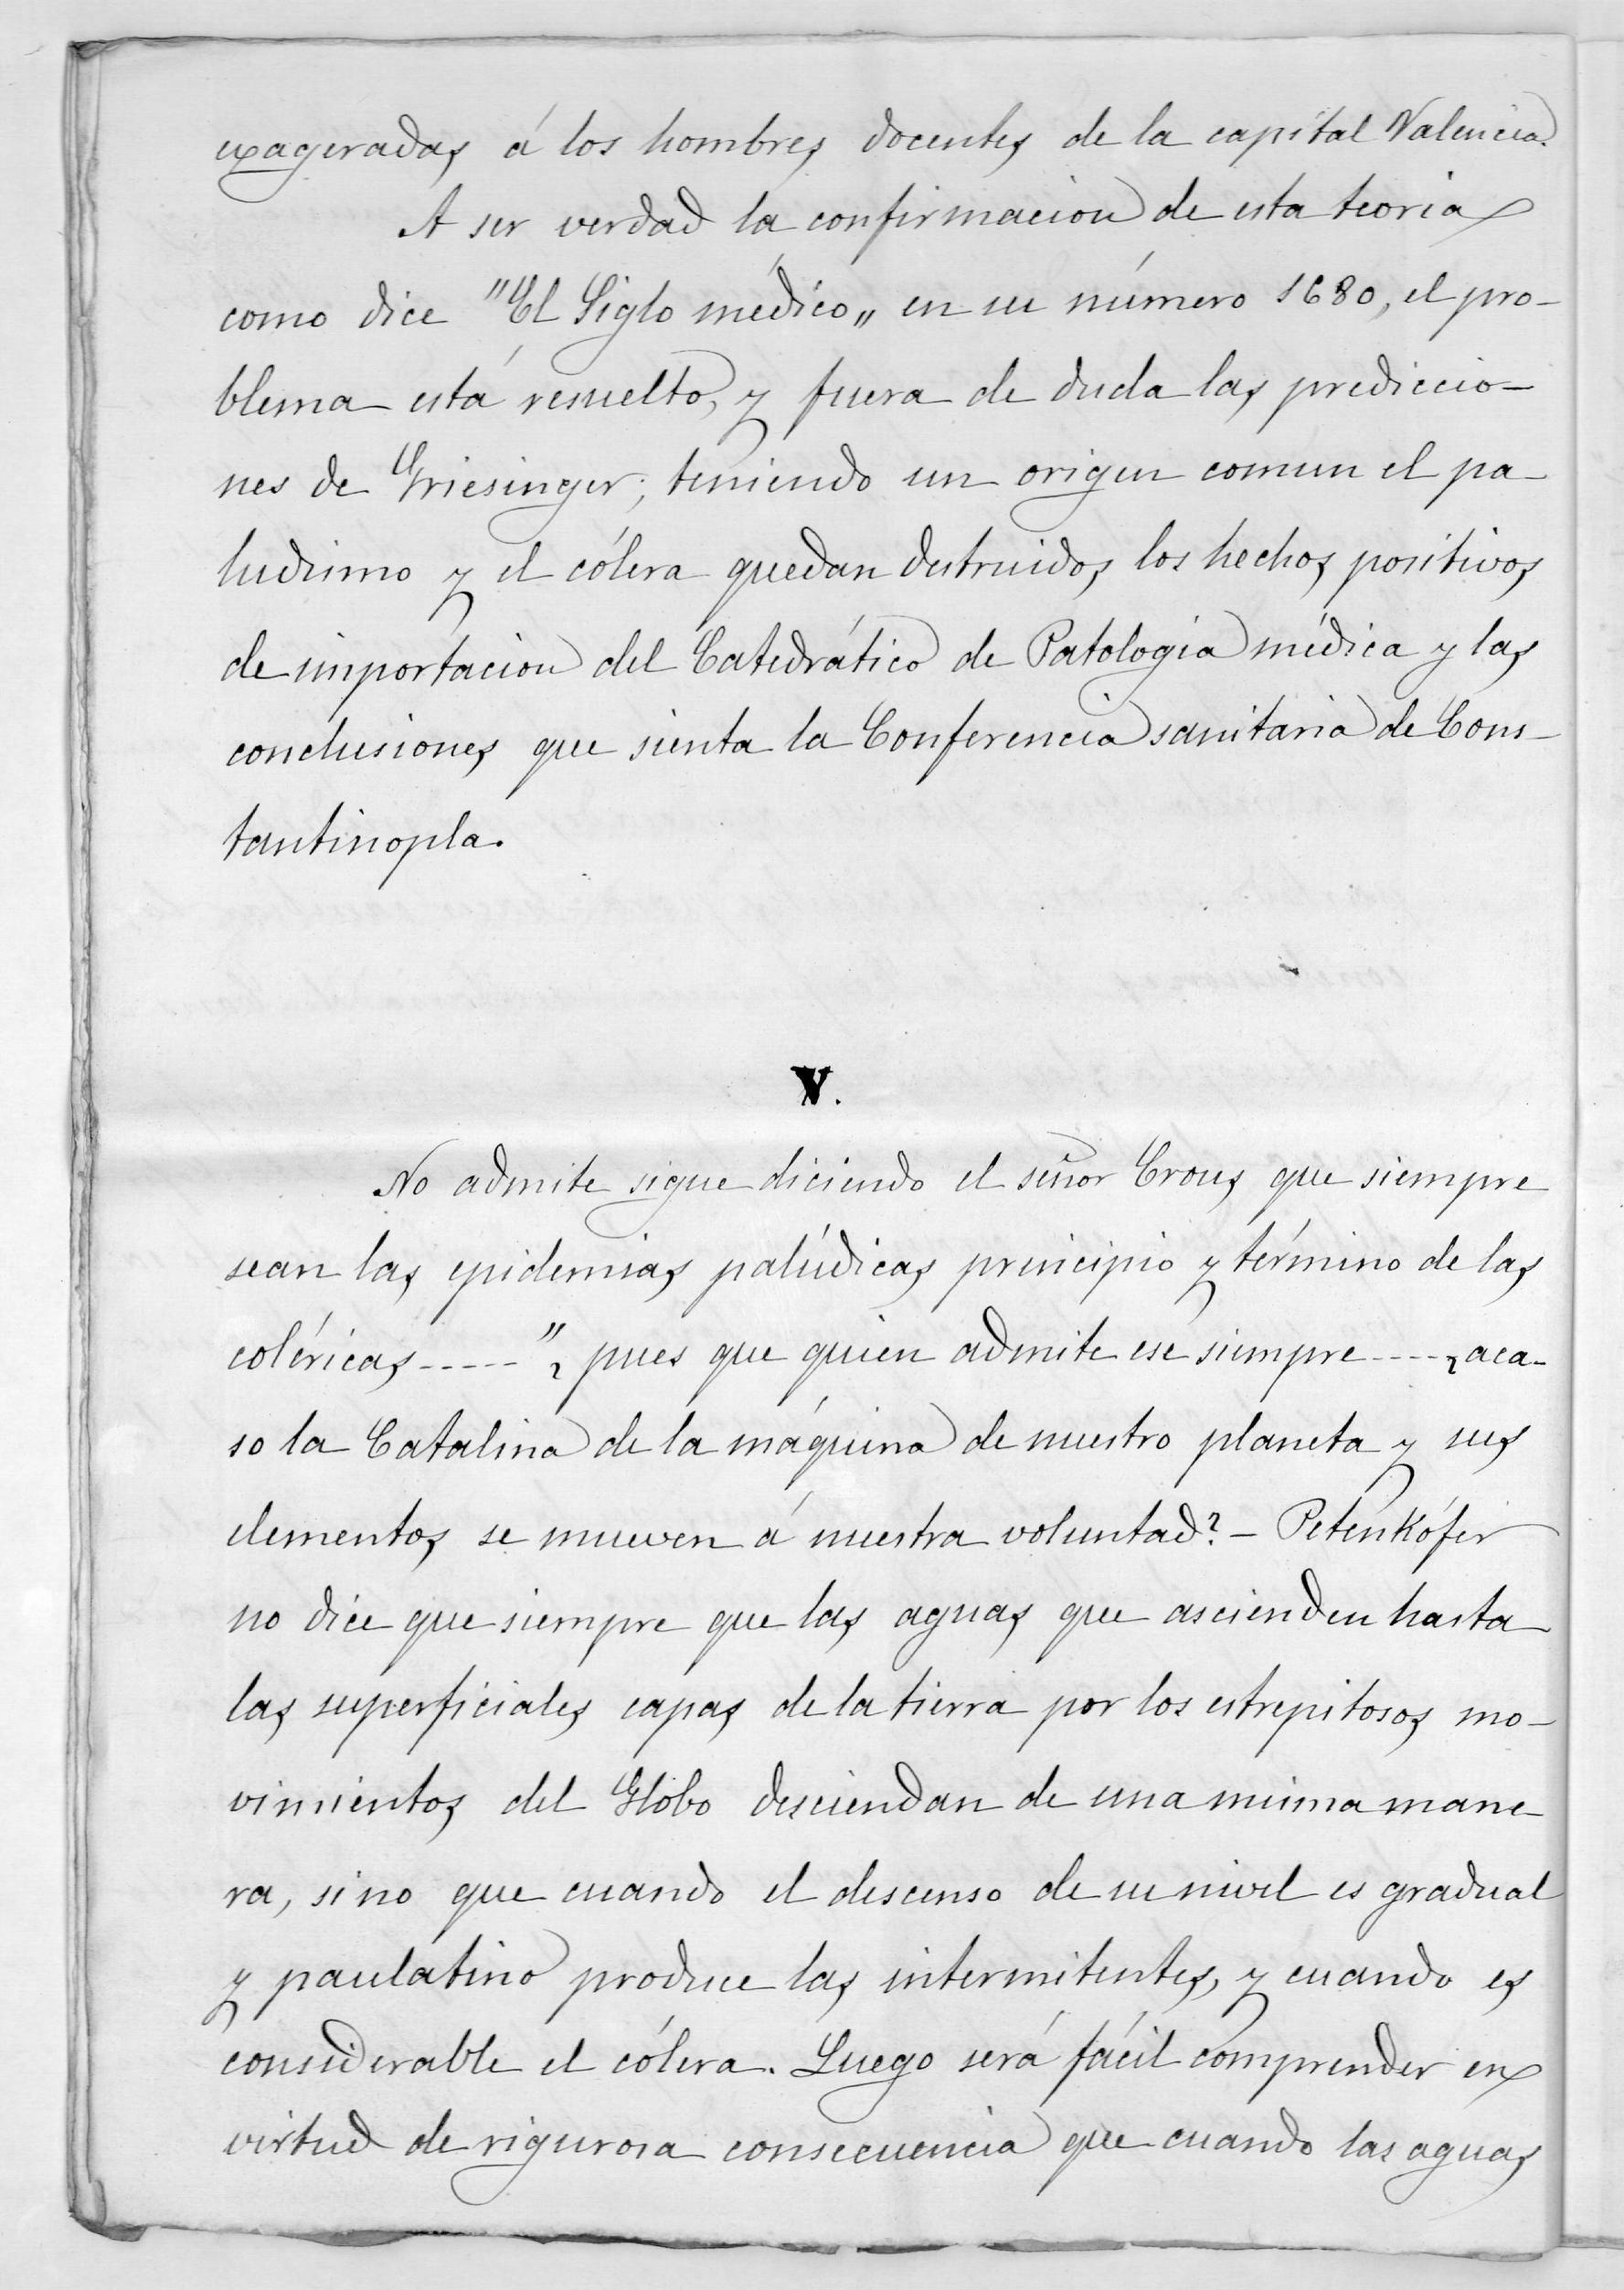 exageradas á los hombres docentes de la capital Valencia.
A ser verdad la confirmacion de esta teoria
como dice "El Siglo médico„ en su número 1680, el pro-
blema está resuelto, y fuera de duda las prediccio-
nes de Griesinger; teniendo un origen comun el pa-
ludismo y el cólera quedan destruidos los hechos positivos
de importacion del Catedrático de Patologia médica y las
conclusiones que sienta la Conferencia sanitaria de Cons-
tantinopla.
V.
No admite sigue diciendo el señor Crous que siempre
sean las epidemias palúdicas principio y término de las
coléricas-----" ¿ pues que quien admite ese siempre----¿ aca-
so la Catalina de la máquina de nuestro planeta y sus
elementos se mueven á nuestra voluntad? - Petenkófer
no dice que siempre que las aguas que ascienden hasta
las superficiales capas de la tierra por los estrepitosos mo-
vimientos del Globo desciendan de una misma mane
ra, sino que cuando el descenso de su nivel es gradual
y paulatino produce las intermitentes, y cuando es
considerable el cólera. Luego será fácil comprender en
virtud de rigurosa consecuencia que cuando las aguas